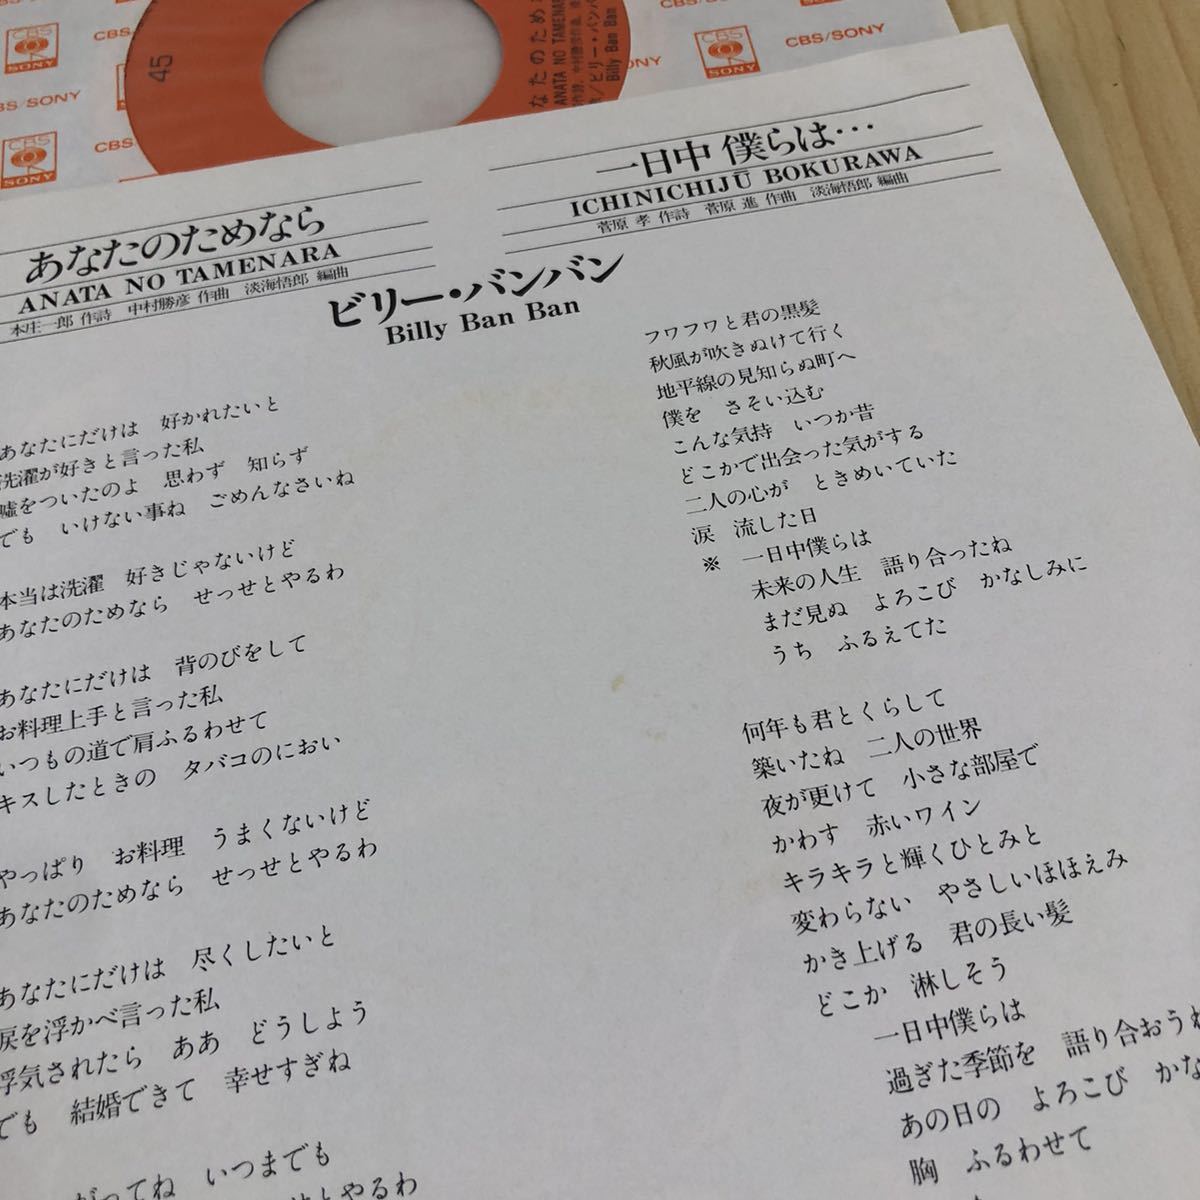 CBS SONY
CBS/SONY
CBS/SONY
CBS SONY
CBS/SONY
CBS
45
なたのため
ANATA NO TAMENAR
ビリー・バンバン
Billy Ban Ban
あなたのためなら
ANATA NO TAMENARA
本庄一郎 作詩 中村勝彦 作曲 淡海悟郎 編曲
一日中 僕らは…
ICHINICHIJŪ BOKURAWA
菅原 孝 作詩 菅原 進 作曲 淡海悟郎 編曲
ビリー・バンバン
Billy Ban Ban
あなたにだけは 好かれたいと
洗濯が好きと言った私
嘘をついたのよ 思わず 知らず
でも いけない事ね ごめんなさいね
本当は洗濯 好きじゃないけど
あなたのためなら せっせとやるわ
あなたにだけは 背のびをして
お料理上手と言った私
いつもの道で肩ふるわせて
キスしたときの タバコのにおい
やっぱり お料理 うまくないけど
あなたのためなら せっせとやるわ
あなたにだけは 尽くしたいと
涙を浮かべ言った私
浮気されたら ああ どうしよう
でも 結婚できて 幸せすぎね
がってね いつまでも
せっせとやるわ
フワフワと君の黒髪
秋風が吹きぬけて行く
地平線の見知らぬ町へ
僕を さそい込む
こんな気持 いつか昔
どこかで出会った気がする
二人の心が ときめいていた
涙 流した日
※ 一日中僕らは
未来の人生 語り合ったね
まだ見ぬ よろこび かなしみに
うち ふるえてた
何年も君とくらして
築いたね 二人の世界
夜が更けて 小さな部屋で
かわす 赤いワイン
キラキラと輝くひとみと
変わらない やさしいほほえみ
かき上げる 君の長い髪
どこか 淋しそう
一日中僕らは
過ぎた季節を 語り合おうね
あの日の よろこび かな
胸 ふるわせて